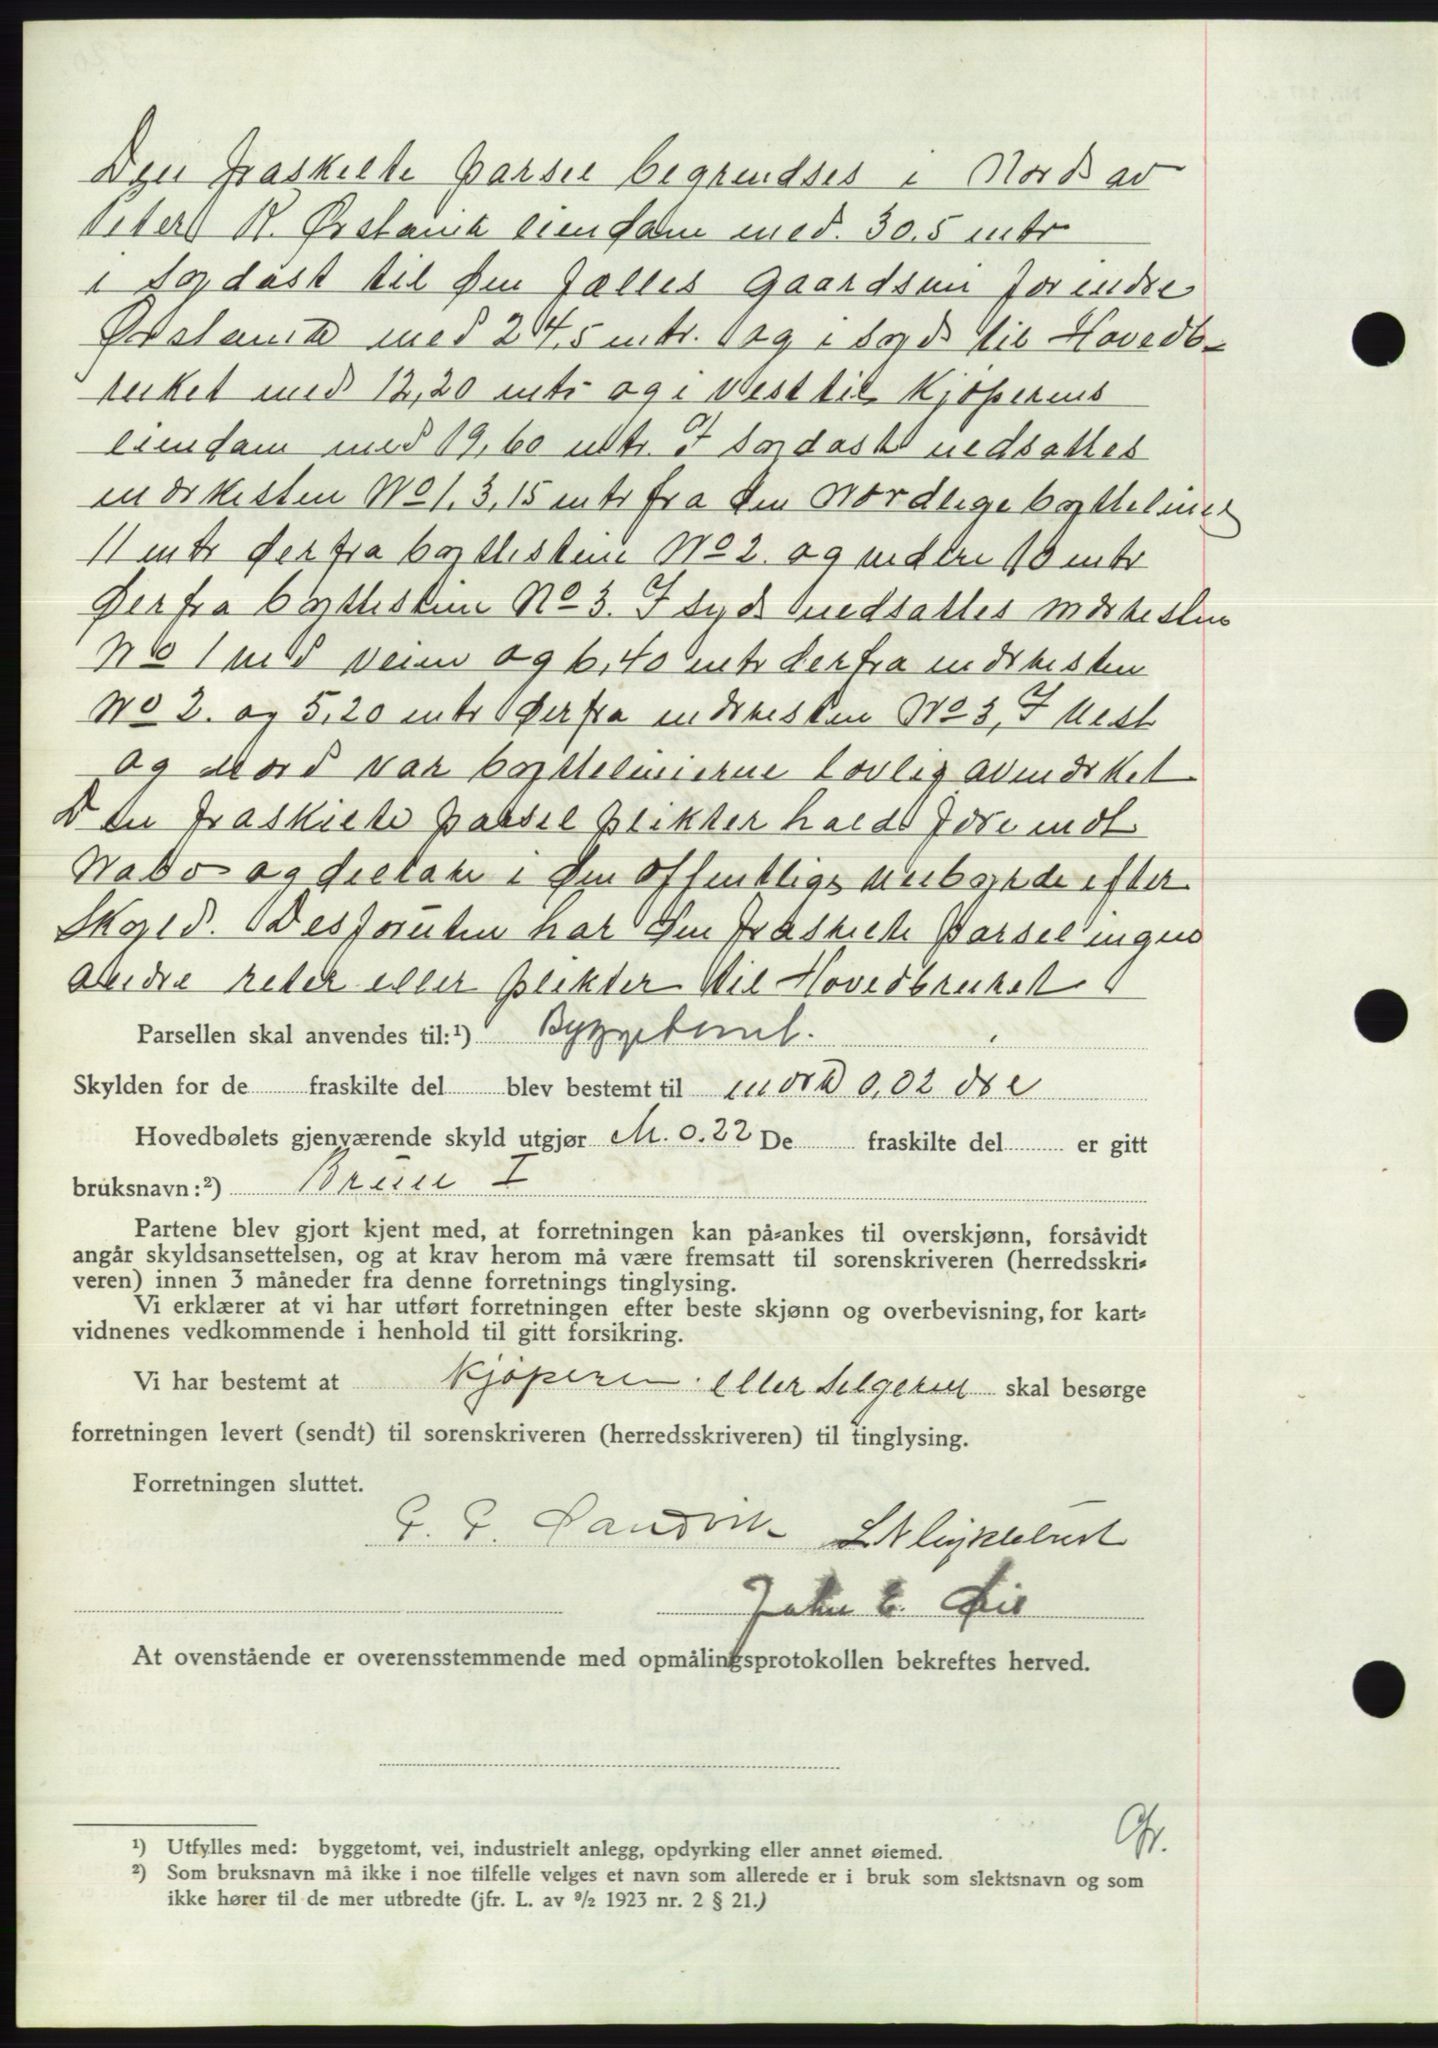 Den fraskilte parsel begrendses i Nord av
Peter R. Ørstavik eiendom med. 30,5 mtr
i sydøst til den fælles gaardsvei for indre
Ørstavik med 24,5 mtr. og i syd til Hovedb-
ruket med 12,20 mtr og i vest til kjøperens
eiendom med 19,60 mtr. I sydøst nedsattes
merkesten No 1. 3,15 mtr fra den Nordlige byttelinje
11 mtr derfra byttestein No 2. og videre 10 mtr
derfra byttestein No 3. I syd nedsattes merkesten
No 1 ved veien og 6,40 mtr derfra merkesten
No 2. og 5,20 mtr derfra merkesten No 3, I Vest
og Nord var byttelinierne lovlig avmerket
Den fraskilte parsel plikter holde gjerde mot
Nabo og deltake i den offentlige veibyrde efter
Skyld. Desforuten har den fraskilte parsel ingen
andre reter eller plikter til Hovedbruket
Parsellen skal anvendes til:¹) Byggetomt.
Skylden for de fraskilte del blev bestemt til mark 0,02 øre
Hovedbølets gjenværende skyld utgjør M. 0.22 De fraskilte del er gitt
bruksnavn:²) I
Partene blev gjort kjent med, at forretningen kan på-ankes til overskjønn, forsåvidt
angår skyldsansettelsen, og at krav herom må være fremsatt til sorenskriveren (herredsskri-
veren) innen 3 måneder fra denne forretnings tinglysing.
Vi erklærer at vi har utført forretningen efter beste skjønn og overbevisning, for kart-
vidnenes vedkommende i henhold til gitt forsikring.
Vi har bestemt at kjøperen eller selgeren skal besørge
forretningen levert (sendt) til sorenskriveren (herredsskriveren) til tinglysing.
Forretningen sluttet.
G. G. Sandvik L N Myklebust
John E. Øie
At ovenstående er overensstemmende med opmålingsprotokollen bekreftes herved.
¹) Utfylles med: byggetomt, vei, industrielt anlegg, opdyrking eller annet øiemed.
²) Som bruksnavn må ikke i noe tilfelle velges et navn som allerede er i bruk som slektsnavn og som
ikke hører til de mer utbredte (jfr. L. av ⁹/₂ 1923 nr. 2 § 21.)